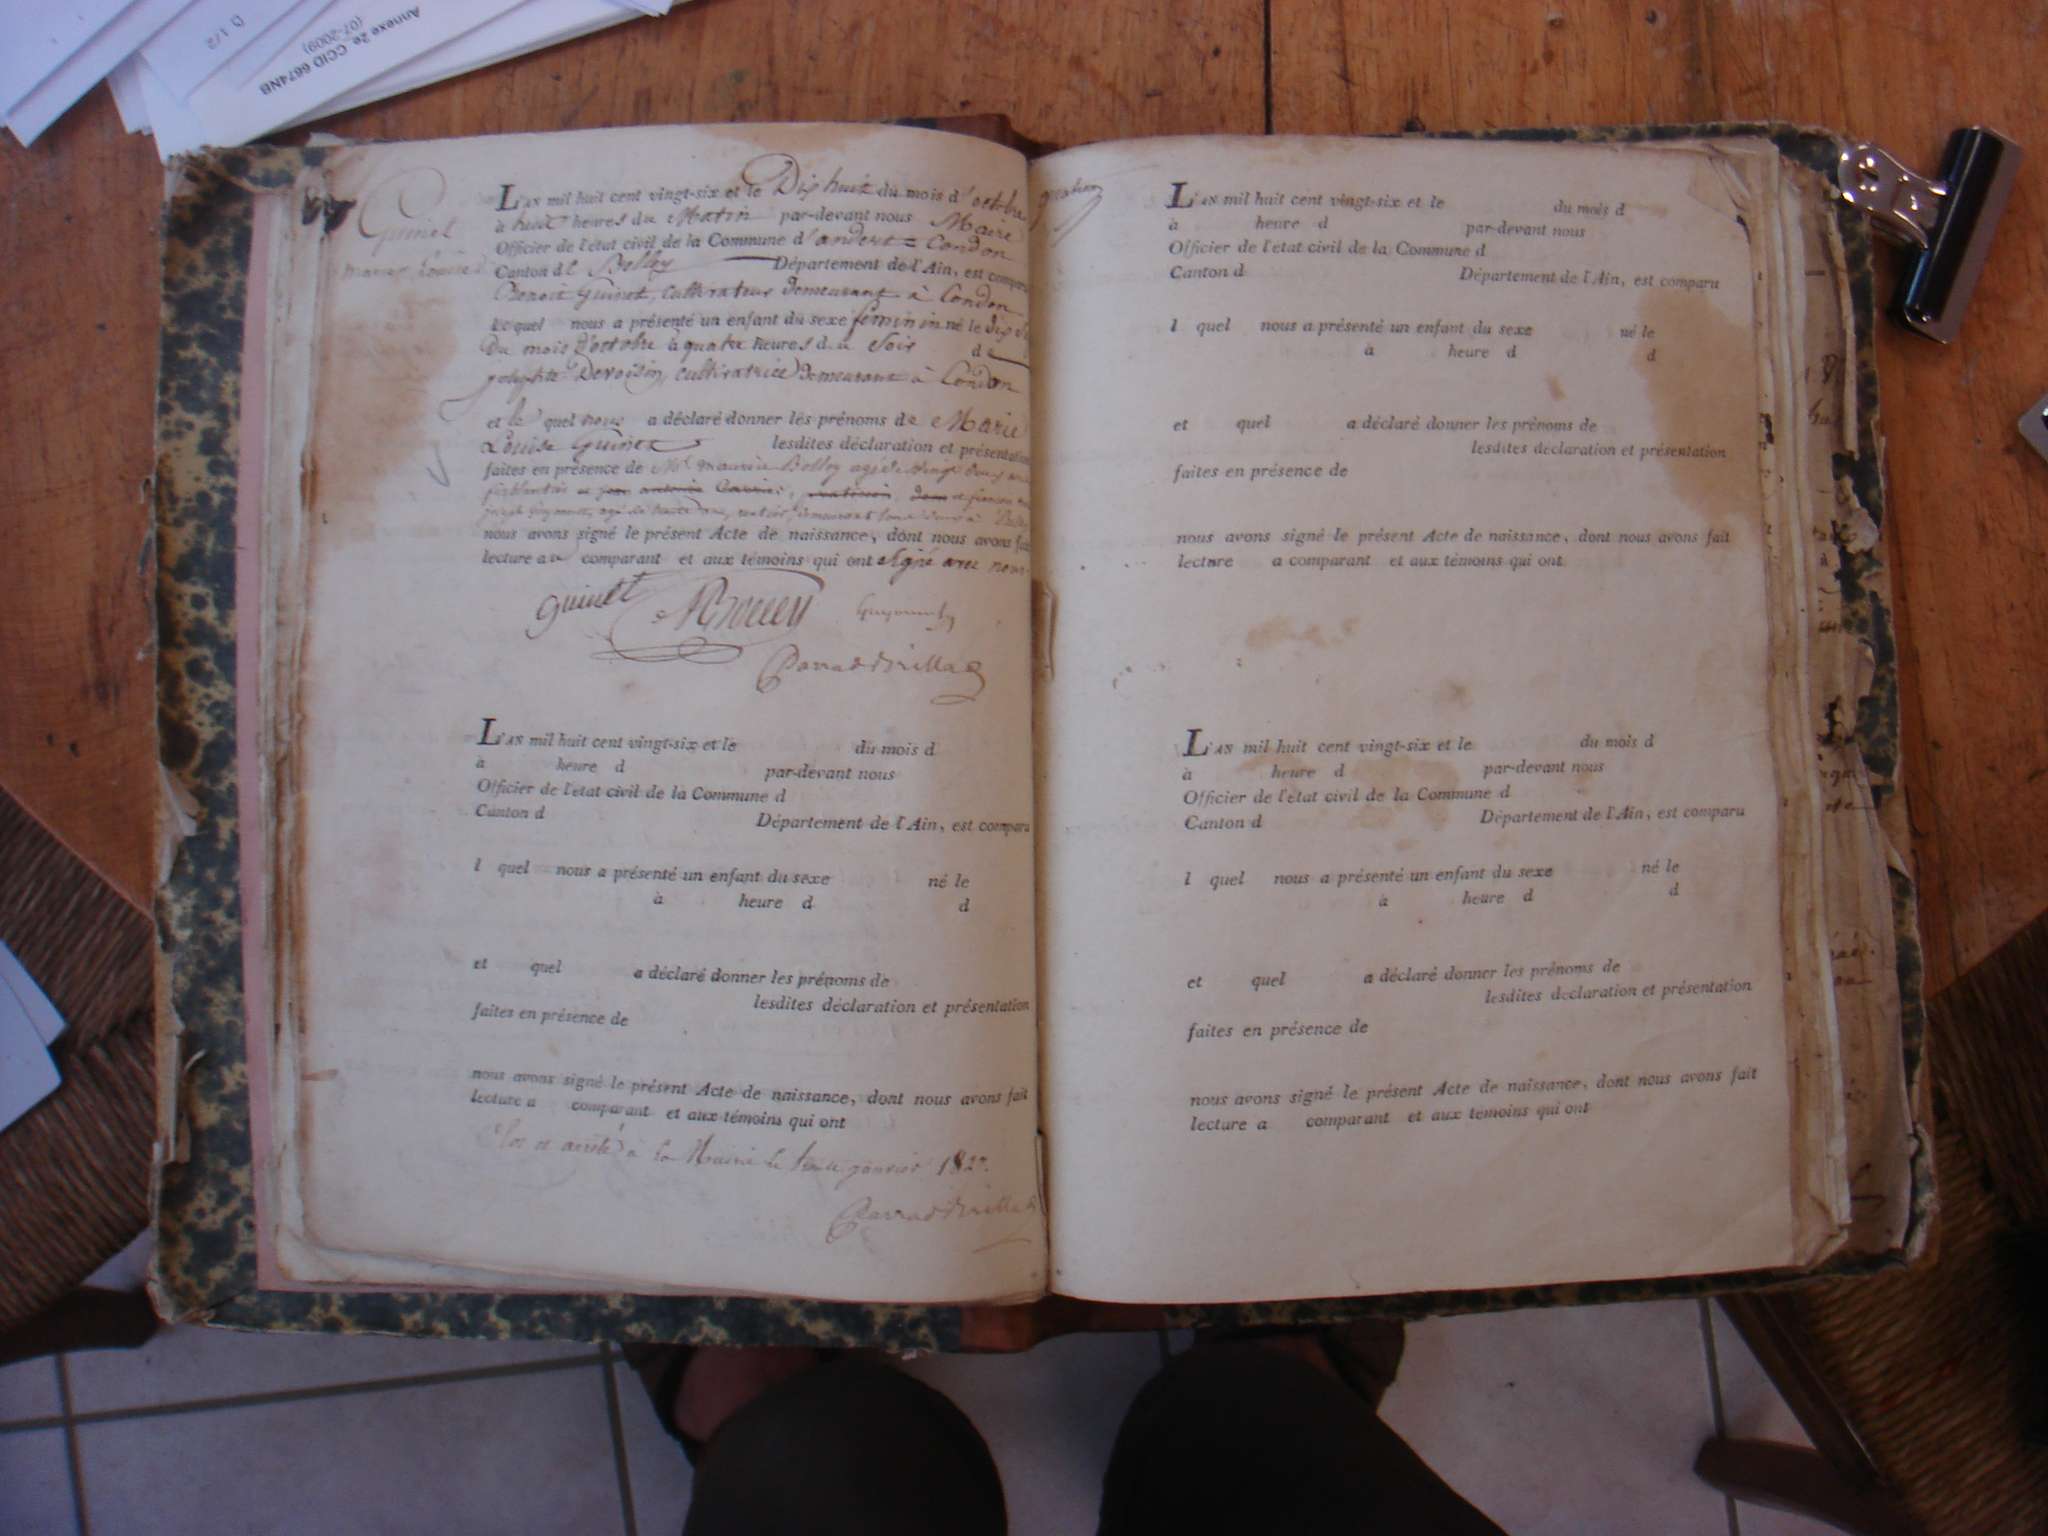 Annexe 2e CCID 6674NB
(07-2009)
D 1/2
Guinet
marie Louise
L'AN mil huit cent vingt-six et le Dix huit du mois d'octobre
à huit heures du Matin par-devant nous Maire
Officier de l'état civil de la Commune d'andert = Condon
Canton de Belley Département de l'Ain, est comparu
Benoit Guinet, cultivateur demeurant à Condon
Lequel nous a présenté un enfant du sexe feminin né le dix
Du mois d'octobre à quatre heures du Soir de
Devoisin, cultivatrice demeurant à Condon
et le quel nous a déclaré donner les prénoms de Marie
Louise Guinet lesdites déclaration et présentation
faites en présence de Mr maurice Bolley agé de vingt
ferblantier et jean antoine
joseph agé de trente demeurant tous deux à
nous avons signé le présent Acte de naissance, dont nous avons fait
lecture au comparant et aux témoins qui ont signé avec nous
guinet
L'AN mil huit cent vingt-six et le du mois d
à heure d par-devant nous
Officier de l'état civil de la Commune d
Canton d Département de l'Ain, est comparu
l quel nous a présenté un enfant du sexe né le
à heure d d
et quel a déclaré donner les prénoms de
lesdites déclaration et présentation
faites en présence de
nous avons signé le présent Acte de naissance, dont nous avons fait
lecture a comparant et aux témoins qui ont
Clos et arrêté à la Mairie le janvier 1827.
L'AN mil huit cent vingt-six et le du mois d
à heure d par-devant nous
Officier de l'etat civil de la Commune d
Canton d Département de l'Ain, est comparu
l quel nous a présenté un enfant du sexe né le
à heure d d
et quel a déclaré donner les prénoms de
lesdites déclaration et présentation
faites en présence de
nous avons signé le présent Acte de naissance, dont nous avons fait
lecture a comparant et aux témoins qui ont
L'AN mil huit cent vingt-six et le du mois d
à heure d par-devant nous
Officier de l'etat civil de la Commune d
Canton d Département de l'Ain, est comparu
l quel nous a présenté un enfant du sexe né le
à heure d d
et quel a déclaré donner les prénoms de
lesdites déclaration et présentation
faites en présence de
nous avons signé le présent Acte de naissance, dont nous avons fait
lecture a comparant et aux témoins qui ont